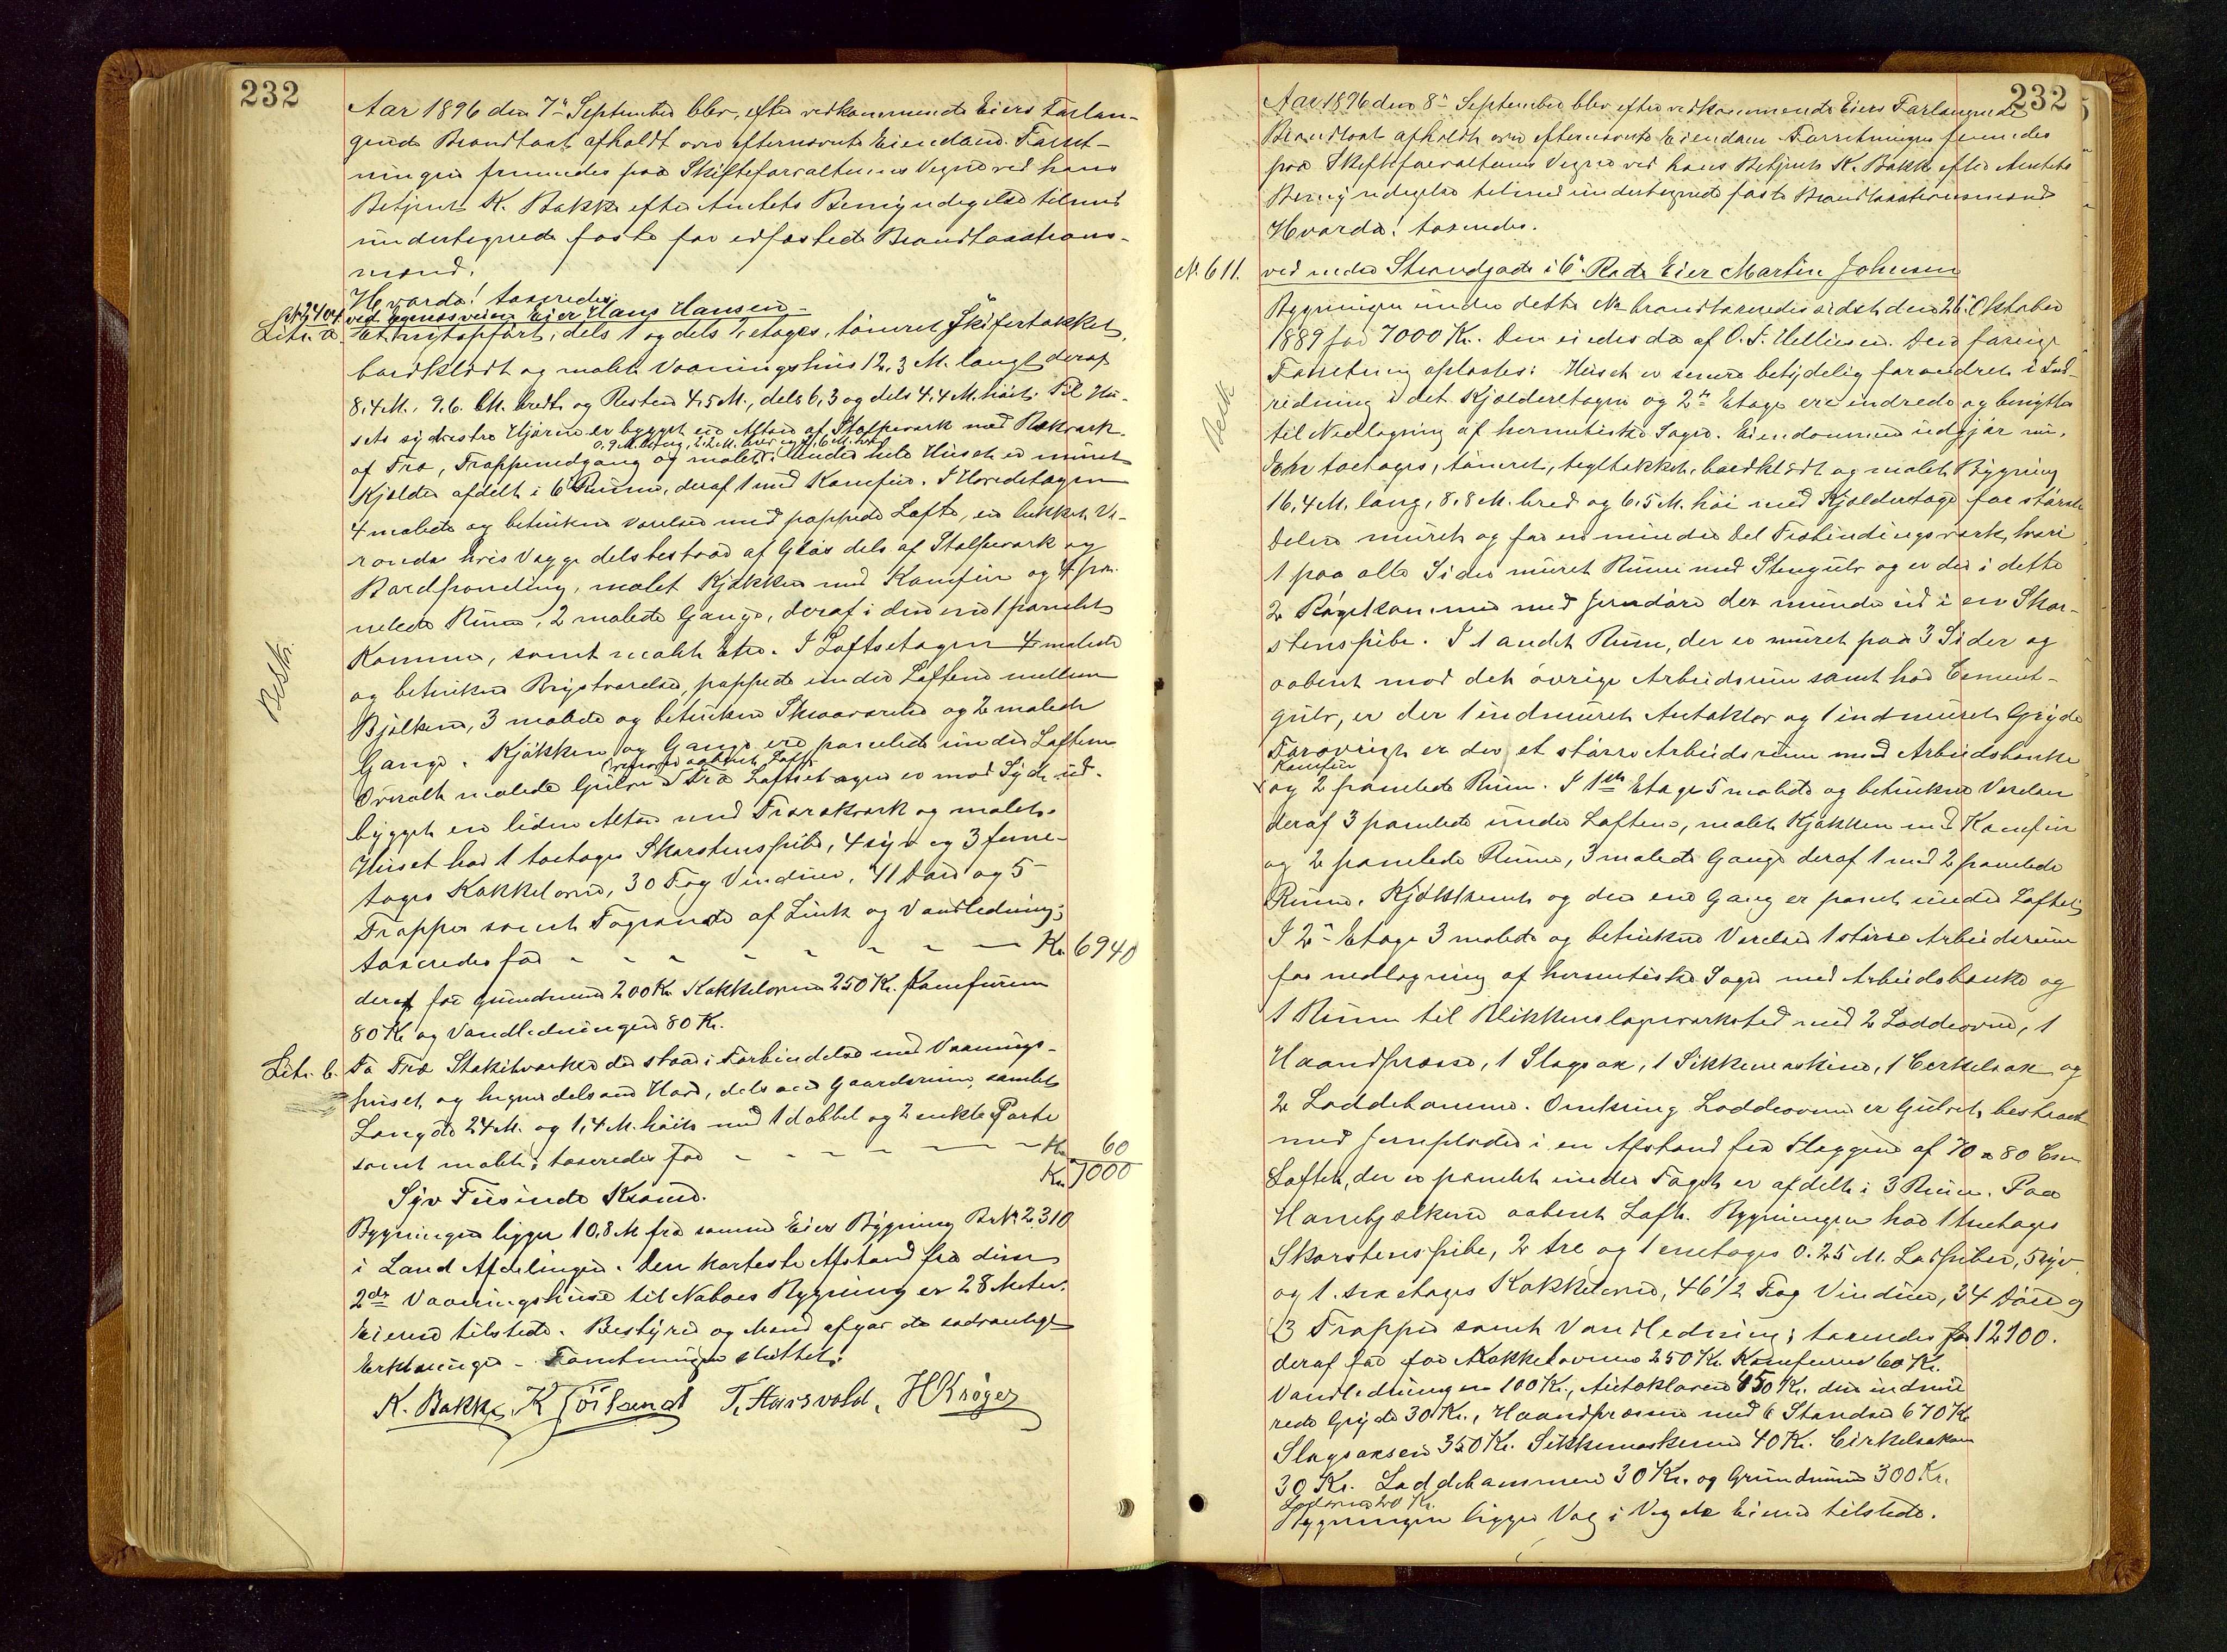 232
Aar 1896 den 7de September blev, efter vedkommende Eiers Forlan-
gende Brandtaxt afholdt over efternævnte Eiendom. Forret-
ningen fremmedes paa Skifteforvalterens Vegne ved hans
Betjent K. Bakke efter Amtets Bemyndigelse tilmed
undertegnede faste for edfæstede Brandtaxations-
mænd.
Hvorda! taxeredes
No 2404 ved Egenæsveien Eier Hans Hansen -
Litr. a. Et nyt opført, dels 1 og dels 2 etages, tømret Skifertækket,
bordklædt og malet Vaaningshus 12,3 M. langt deraf
8,4 M., 9,6 M. bredt og Resten 4,5 M., dels 6,3 og dels 4,4 M. høit. Til Hu-
sets sydvestre Hjørne er bygget en Altan af Stolpeværk med Rækværk
af Træ, Trappenedgang og malet. Under hele Huset er muret
Kjelder afdelt i 6 Rum, deraf 1 med Komfur. I Hovedetagen
4 malede og betrukne Værelser med pappede Lofte, en lukket Ve-
randa hvis Vægge dels bestaar af Glas dels af Stolpeværk og
Bordpaneling, malet Kjøkken med Komfur og 4 pa-
nelede Rum, 2 malede Gange, deraf i den ene 1 panelet
Kammer, samt malet Etre. I Loftsetagen 4 malede
og betrukne Kvistværelser, pappede under Loftene mellem
Bjelkene, 3 malede og betrukne Skraaværelser og 2 malede
Gange. Kjøkken og Gange ere panelede under Loftene
Overalt malede Gulve. Fra Loftsetagen er mod Syd ud-
bygget en liden Altan med Trærækværk og malet.
Huset har 1 toetages Skorstenspibe, 4 syv og 3 fem-
tages Kakkelovne, 30 Fag Vinduer, 41 Døre og 5
Trapper samt Tagrende af Zink og Vandledning;
taxeredes for - - - - - - - Kr. 6940
deraf for Grundmur 200 Kr. Kakkelovne 250 Kr. Komfurene
80 Kr. og Vandledningen 80 Kr.
Litr. b. To Træ Stakitværker der staar i Forbindelse med Vaanings-
huset, og hegner dels om Have, dels om Gaardsrum, samlet
Længde 24 M. og 1,4 M. høit med 1 dobbel og 2 enkle Porte
samt malet; taxeredes for - - - - - - Kr. 60
Kr. 7000
Syv Tusinde Kroner.
Bygningen ligger 10,8 M fra samme Eiers Bygning Br. No 2310
i Land Afdelingen. Den korteste Afstand fra disse
2de Vaaningshuse til Naboes Bygning er 28 Meter.
Eieren tilstede. Bestyrer og Mænd afgav de sædvanlige
Erklæringer - Forretningen sluttet.
K. Bakke, K Torkend T. Aarsvold, H Krøger
Beskr.
232
Aar 1896 den 8de September blev efter vedkommende Eiers Forlangende
Brandtaxt afholdt over efternævnte Eiendom. Forretningen fremmedes
paa Skifteforvalterens Vegne ved hans Betjent K. Bakke efter Amtets
Bemyndigelse tilmed undertegnede faste Brandtaxationsmænd
Hvorda! taxeredes.
No. 611. ved nedre Strandgade i 6te Rode Eier Martin Johnsen
Bygningen under dette No brandtaxeredes sidst den 26 Oktober
1889 for 7000 Kr. Den eiedes da af O. T. Helliesen. Den forrige
Forretning oplæstes: Huset er senere betydelig forandret i Ind-
redning i det Kjelderetagen og 2den Etage ere indrede og benyttes
til Nedlægning af hermetiske Sager. Eiendommen udgjør nu,
En toetages, tømret, tegltækket, bordklædt og malet Bygning
16,4 M. lang, 8,8 M. bred og 6,5 M. høi med Kjelderetage for største
Delen muret og for en mindre Del Træbindingsværk, hvori
1 paa alle Sider muret Rum med Stengulv og er der i dette
2 Røgekammer med Jerndøre der munde ud i en Skor-
stenspibe. I 1 andet Rum, der er muret paa 3 Sider og
aabent mod det øvrige Arbeidsrum samt har Cement-
gulv, er der 1 indmuret Autoklav og 1 indmuret Gryde
Forøvrigt er der et større Arbeidsrum med Arbeidsbænke
Komfur
og 2 panelede Rum. I 1ste Etage 5 malede og betrukne Værelser
deraf 3 panelede under Loftene, malet Kjøkken med Komfur
og 2 panelede Rum, 3 malede Gange deraf 1 med 2 panelede
Rum. Kjøkkenet og den ene Gang er panelet under Loftet.
I 2den Etage 3 malede og betrukne Værelser 1 større Arbeidsrum
for nedlægning af hermetiske Sager med Arbeidsbænke og
1 Rum til Blikkenslagerværksted med 2 Loddeovne, 1
Haandpresse, 1 Slagsax, 1 Sikkemaskine, 1 Cirkelsax og
2 Loddehammer. Omkring Loddeovnene er Gulvet beslaaet
med Jernplader i en Afstand fra Væggene af 70 a 80 Cm
Loftet, der er panelet under Taget er afdelt i 3 Rum. Paa
Hanebjelkene aabent Loft. Bygningen har 1 treetages
Skorstenspibe, 2 tre og 1 enetages 0.25 M. Ladpiber, 5 syv
og 1 sex etages Kakkelovne, 46 1/2 Fag Vinduer, 34 Døre og
3 Trapper samt Vandledning; taxeredes for 12100.
deraf for Kakkelovne 250 Kr. Komfurene 60 Kr.
Vandledningen 100 Kr., Autoklaven 450 Kr. den indmu-
rede Gryde 30 Kr., Haandpressen med 6 Standser 670 Kr
Slagsaxen 350 Kr. Sikkemaskinen 40 Kr. Cirkelsaxen
30 Kr. Loddehammeren 30 Kr. og Grundmuren 300 Kr.
Lodovne 20 Kr.
Bygningen ligger Væg i Væg da Eieren tilstede.
Beskr.